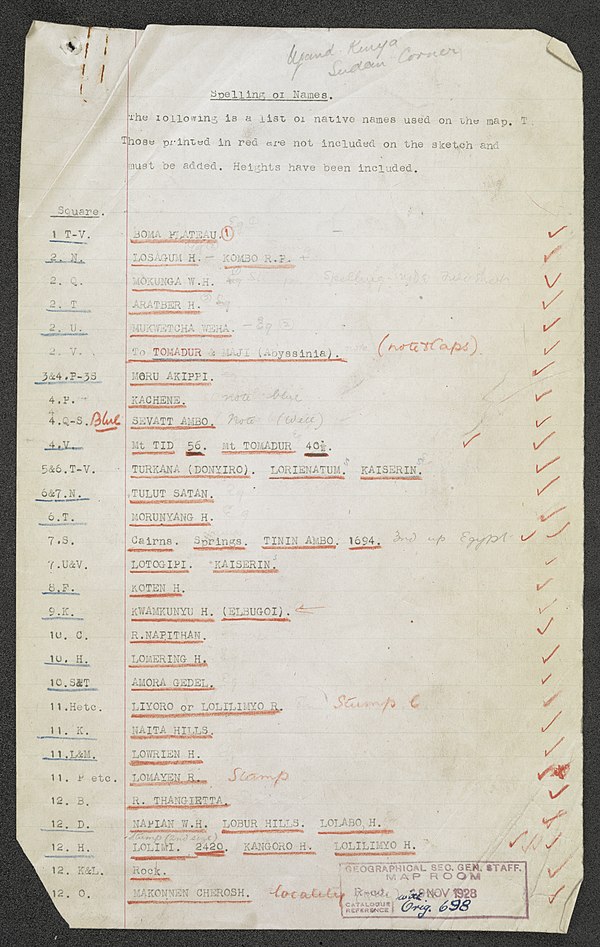 Uganda Kenya
Sudan Corner
Spelling of Names.
The following is a list of native names used on the map. T
Those printed in red are not included on the sketch and
must be added. Heights have been included.
Square.
1 T-V. BOMA PLATEAU. 1
2. N. LOSAGUM H. - KOMBO R.P.
2. Q. MOKUNGA W.H. Spelling
2. T ARATBER H.
2. U. MUKWETCHA WEHA.
2. V. To TOMADUR & MAJI (Abyssinia). (note & Caps)
3&4. P-3S MORU AKIPPI.
4.P. KACHENE. note blue
4.Q-S. Blue SEVATT AMBO. Note (Well)
4.V. Mt TID 56. Mt TOMADUR 40½.
5&6.T-V. TURKANA (DONYIRO). LORIENATUM. KAISERIN.
6&7.N. TULUT SATAN.
6.T. MORUNYANG H.
7.S. Cairns. Springs. TININ AMBO. 1694. 2nd up Egypt
7.U&V. LOTOGIPI. KAISERIN.
8.F. KOTEN H.
9.K. KWAMKUNYU H. (ELBUGOI).
10. C. R.NAPITHAN.
10. H. LOMERING H.
10.S&T AMORA GEDEL.
11.Hetc. LIYORO or LOLILIMYO R. Stump
11. K. NAITA HILLS.
11.L&M. LOWRIEN H.
11. P etc. LOMAYEN R. Stamp
12. B. R. THANGIETTA.
12. D. NAPIAN W.H. LOBUR HILLS. LOLABO H.
stump (and size)
12. H. LOLIWI. 2420. KANGORO H. LOLILIMYO H.
12. K&L. Rock.
12. O. MAKONNEN CHEROSH. locality
GEOGRAPHICAL SEC. GEN. STAFF.
MAP ROOM
Recd. 29 NOV 1928
CATALOGUE REFERENCE with Orig. 698